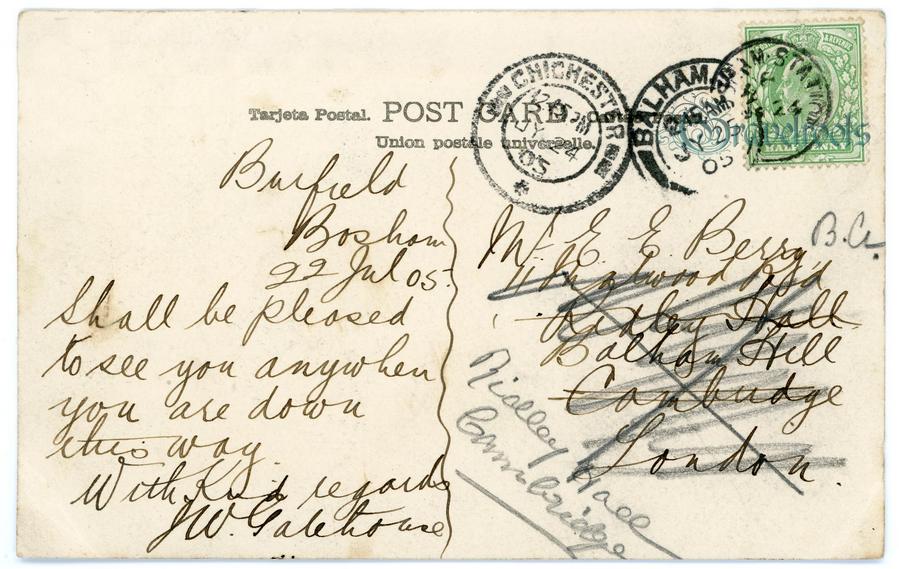 Tarjeta Postal. POST CARD
Union postale universelle.
CHICHESTER
JY 24
05
BALHAM
05
STATION
HALFPENNY
Burfield
Bosham
22 Jul 05.
Shall be pleased
to see you anywhen
you are down
this way.
With Kind regards
JW. Gatehouse
Mr E. E. Berry
B.C.
Road
Ridley Hall
Balham Hill
Cambridge
London.
Ridley Hall
Cambridge